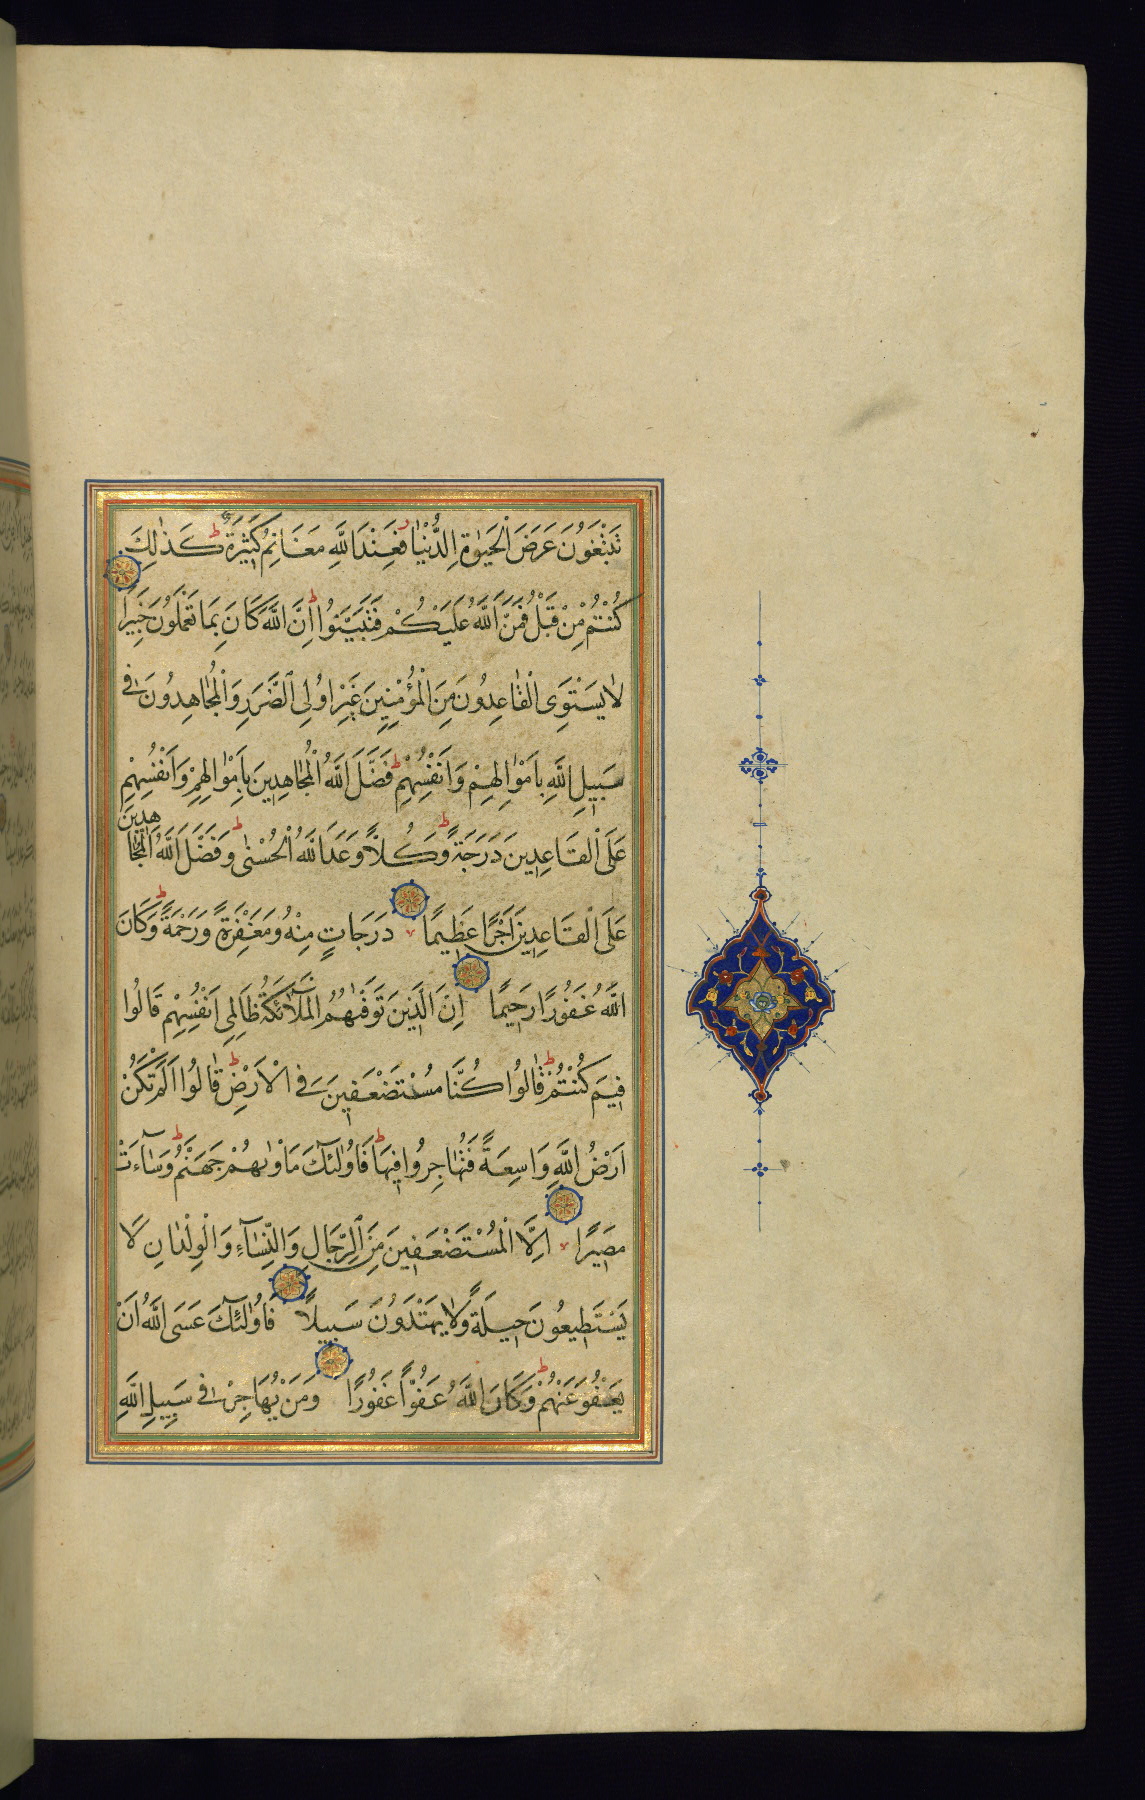 تَبْتَغُونَ عَرَضَ الْحَيٰوةِ الدُّنْيَا فَعِنْدَ اللَّهِ مَغَانِمُ كَثِيرَةٌ ط كَذٰلِكَ
كُنْتُمْ مِنْ قَبْلُ فَمَنَّ اللَّهُ عَلَيْكُمْ فَتَبَيَّنُوا ط اِنَّ اللَّهَ كَانَ بِمَا تَعْمَلُونَ خَبِيرًا
لَا يَسْتَوِى الْقَاعِدُونَ مِنَ الْمُؤْمِنِينَ غَيْرُ اُولِى الضَّرَرِ وَالْمُجَاهِدُونَ فِى
سَبِيلِ اللَّهِ بِاَمْوَالِهِمْ وَاَنْفُسِهِمْ ط فَضَّلَ اللَّهُ الْمُجَاهِدِينَ بِاَمْوَالِهِمْ وَاَنْفُسِهِمْ
عَلَى الْقَاعِدِينَ دَرَجَةً ط وَكُلًّا وَعَدَ اللَّهُ الْحُسْنٰى ط وَفَضَّلَ اللَّهُ الْمُجَاهِدِينَ
عَلَى الْقَاعِدِينَ اَجْرًا عَظِيمًا دَرَجَاتٍ مِنْهُ وَمَغْفِرَةً وَرَحْمَةً ط وَكَانَ
اللَّهُ غَفُورًا رَحِيمًا اِنَّ الَّذِينَ تَوَفّٰىهُمُ الْمَلٰٓائِكَةُ ظَالِمِى اَنْفُسِهِمْ قَالُوا
فِيمَ كُنْتُمْ ط قَالُوا كُنَّا مُسْتَضْعَفِينَ فِى الْاَرْضِ ط قَالُوا اَلَمْ تَكُنْ
اَرْضُ اللَّهِ وَاسِعَةً فَتُهَاجِرُوا فِيهَا ط فَاُولٰٓئِكَ مَاْوٰىهُمْ جَهَنَّمُ ط وَسَآءَتْ
مَصِيرًا اِلَّا الْمُسْتَضْعَفِينَ مِنَ الرِّجَالِ وَالنِّسَآءِ وَالْوِلْدَانِ لَا
يَسْتَطِيعُونَ حِيلَةً وَلَا يَهْتَدُونَ سَبِيلًا فَاُولٰٓئِكَ عَسَى اللَّهُ اَنْ
يَعْفُوَ عَنْهُمْ ط وَكَانَ اللَّهُ عَفُوًّا غَفُورًا وَمَنْ يُهَاجِرْ فِى سَبِيلِ اللَّهِ